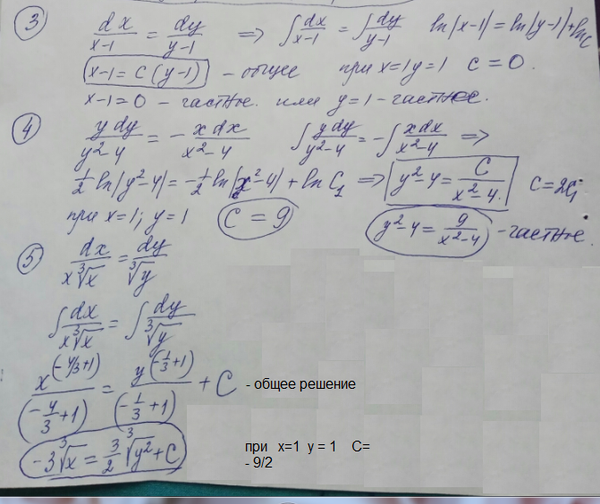 ③ dx/(x-1) = dy/(y-1) ⇒ ∫ dx/(x-1) = ∫ dy/(y-1) ln|x-1| = ln|y-1| + ln C
x-1 = C(y-1) - общее при x=1 y=1 C=0.
x-1=0 - частное. или y=1 - частное.
④ y dy/(y²-4) = - x dx/(x²-4) ∫ y dy/(y²-4) = -∫ x dx/(x²-4) ⇒
1/2 ln|y²-4| = -1/2 ln|x²-4| + ln C₁ ⇒ y²-4 = C/(x²-4). C=2C₁
при x=1; y=1 C=9 y²-4 = 9/(x²-4) - частное.
⑤ dx/(x∛x) = dy/∛y
∫ dx/(x∛x) = ∫ dy/∛y
x^(-4/3+1)/(-4/3+1) = y^(-1/3+1)/(-1/3+1) + C - общее решение
-3∛x = 3/2 ∛y² + C
при x=1 y = 1 C=
- 9/2